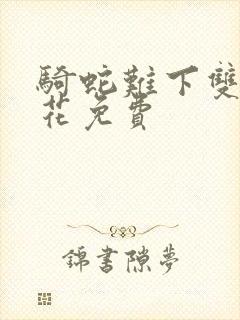 騎蛇難下雙
花免費
錦書隙夢